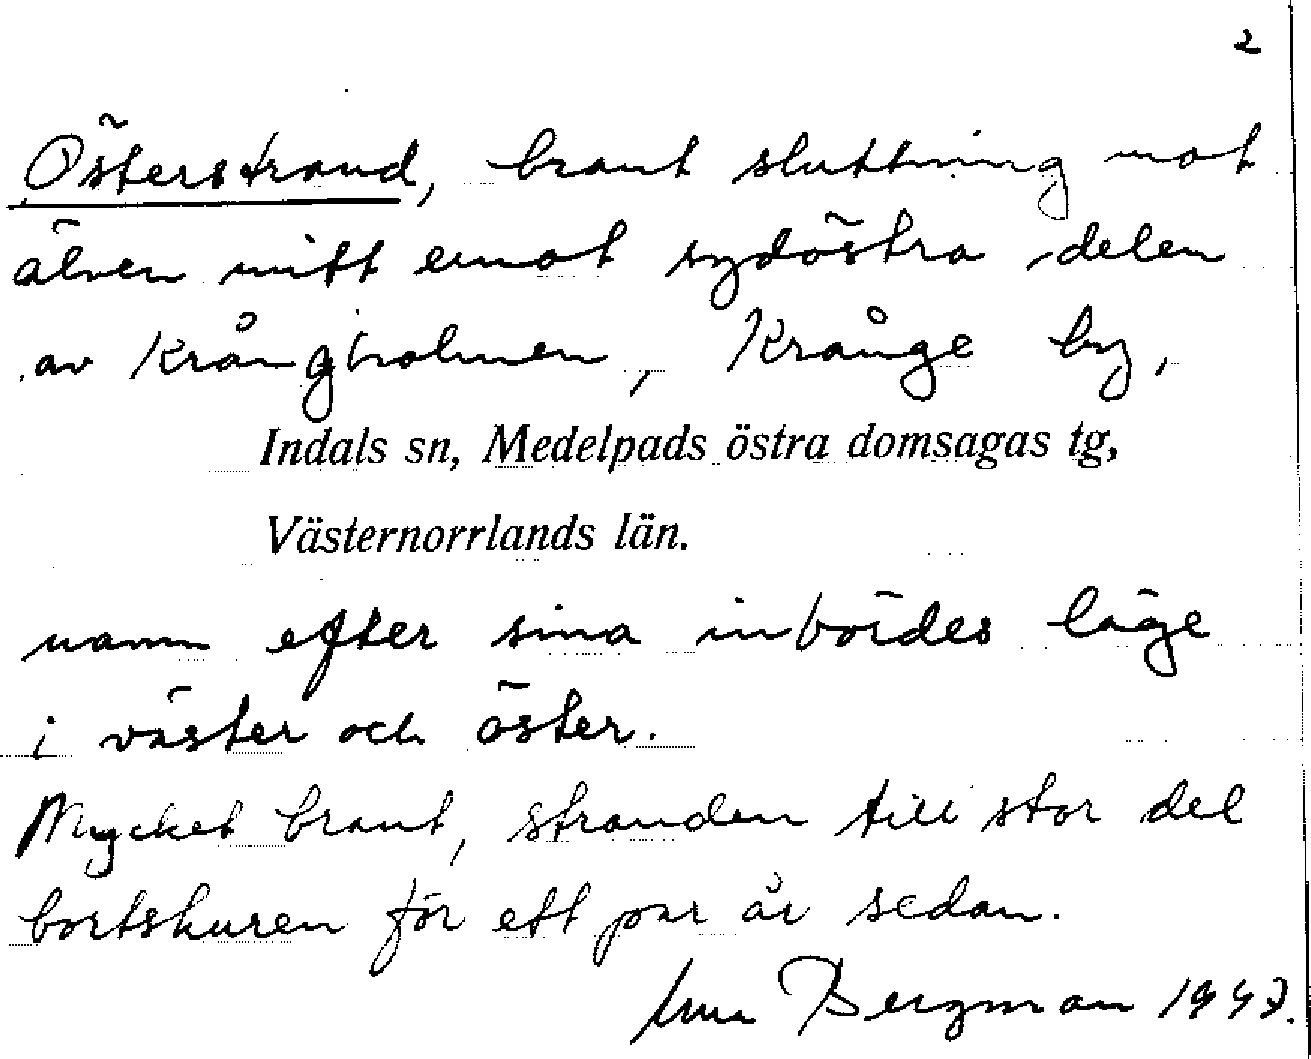 2
Österstrand, brant sluttning mot
älven mitt emot sydöstra delen
av Krångholmen, Krånge by,
Indals sn, Medelpads östra domsagas tg,
Västernorrlands län.
namn efter sina inbördes läge
i väster och öster.
Mycket brant, stranden till stor del
bortskuren för ett par år sedan.
Bergman 1943.